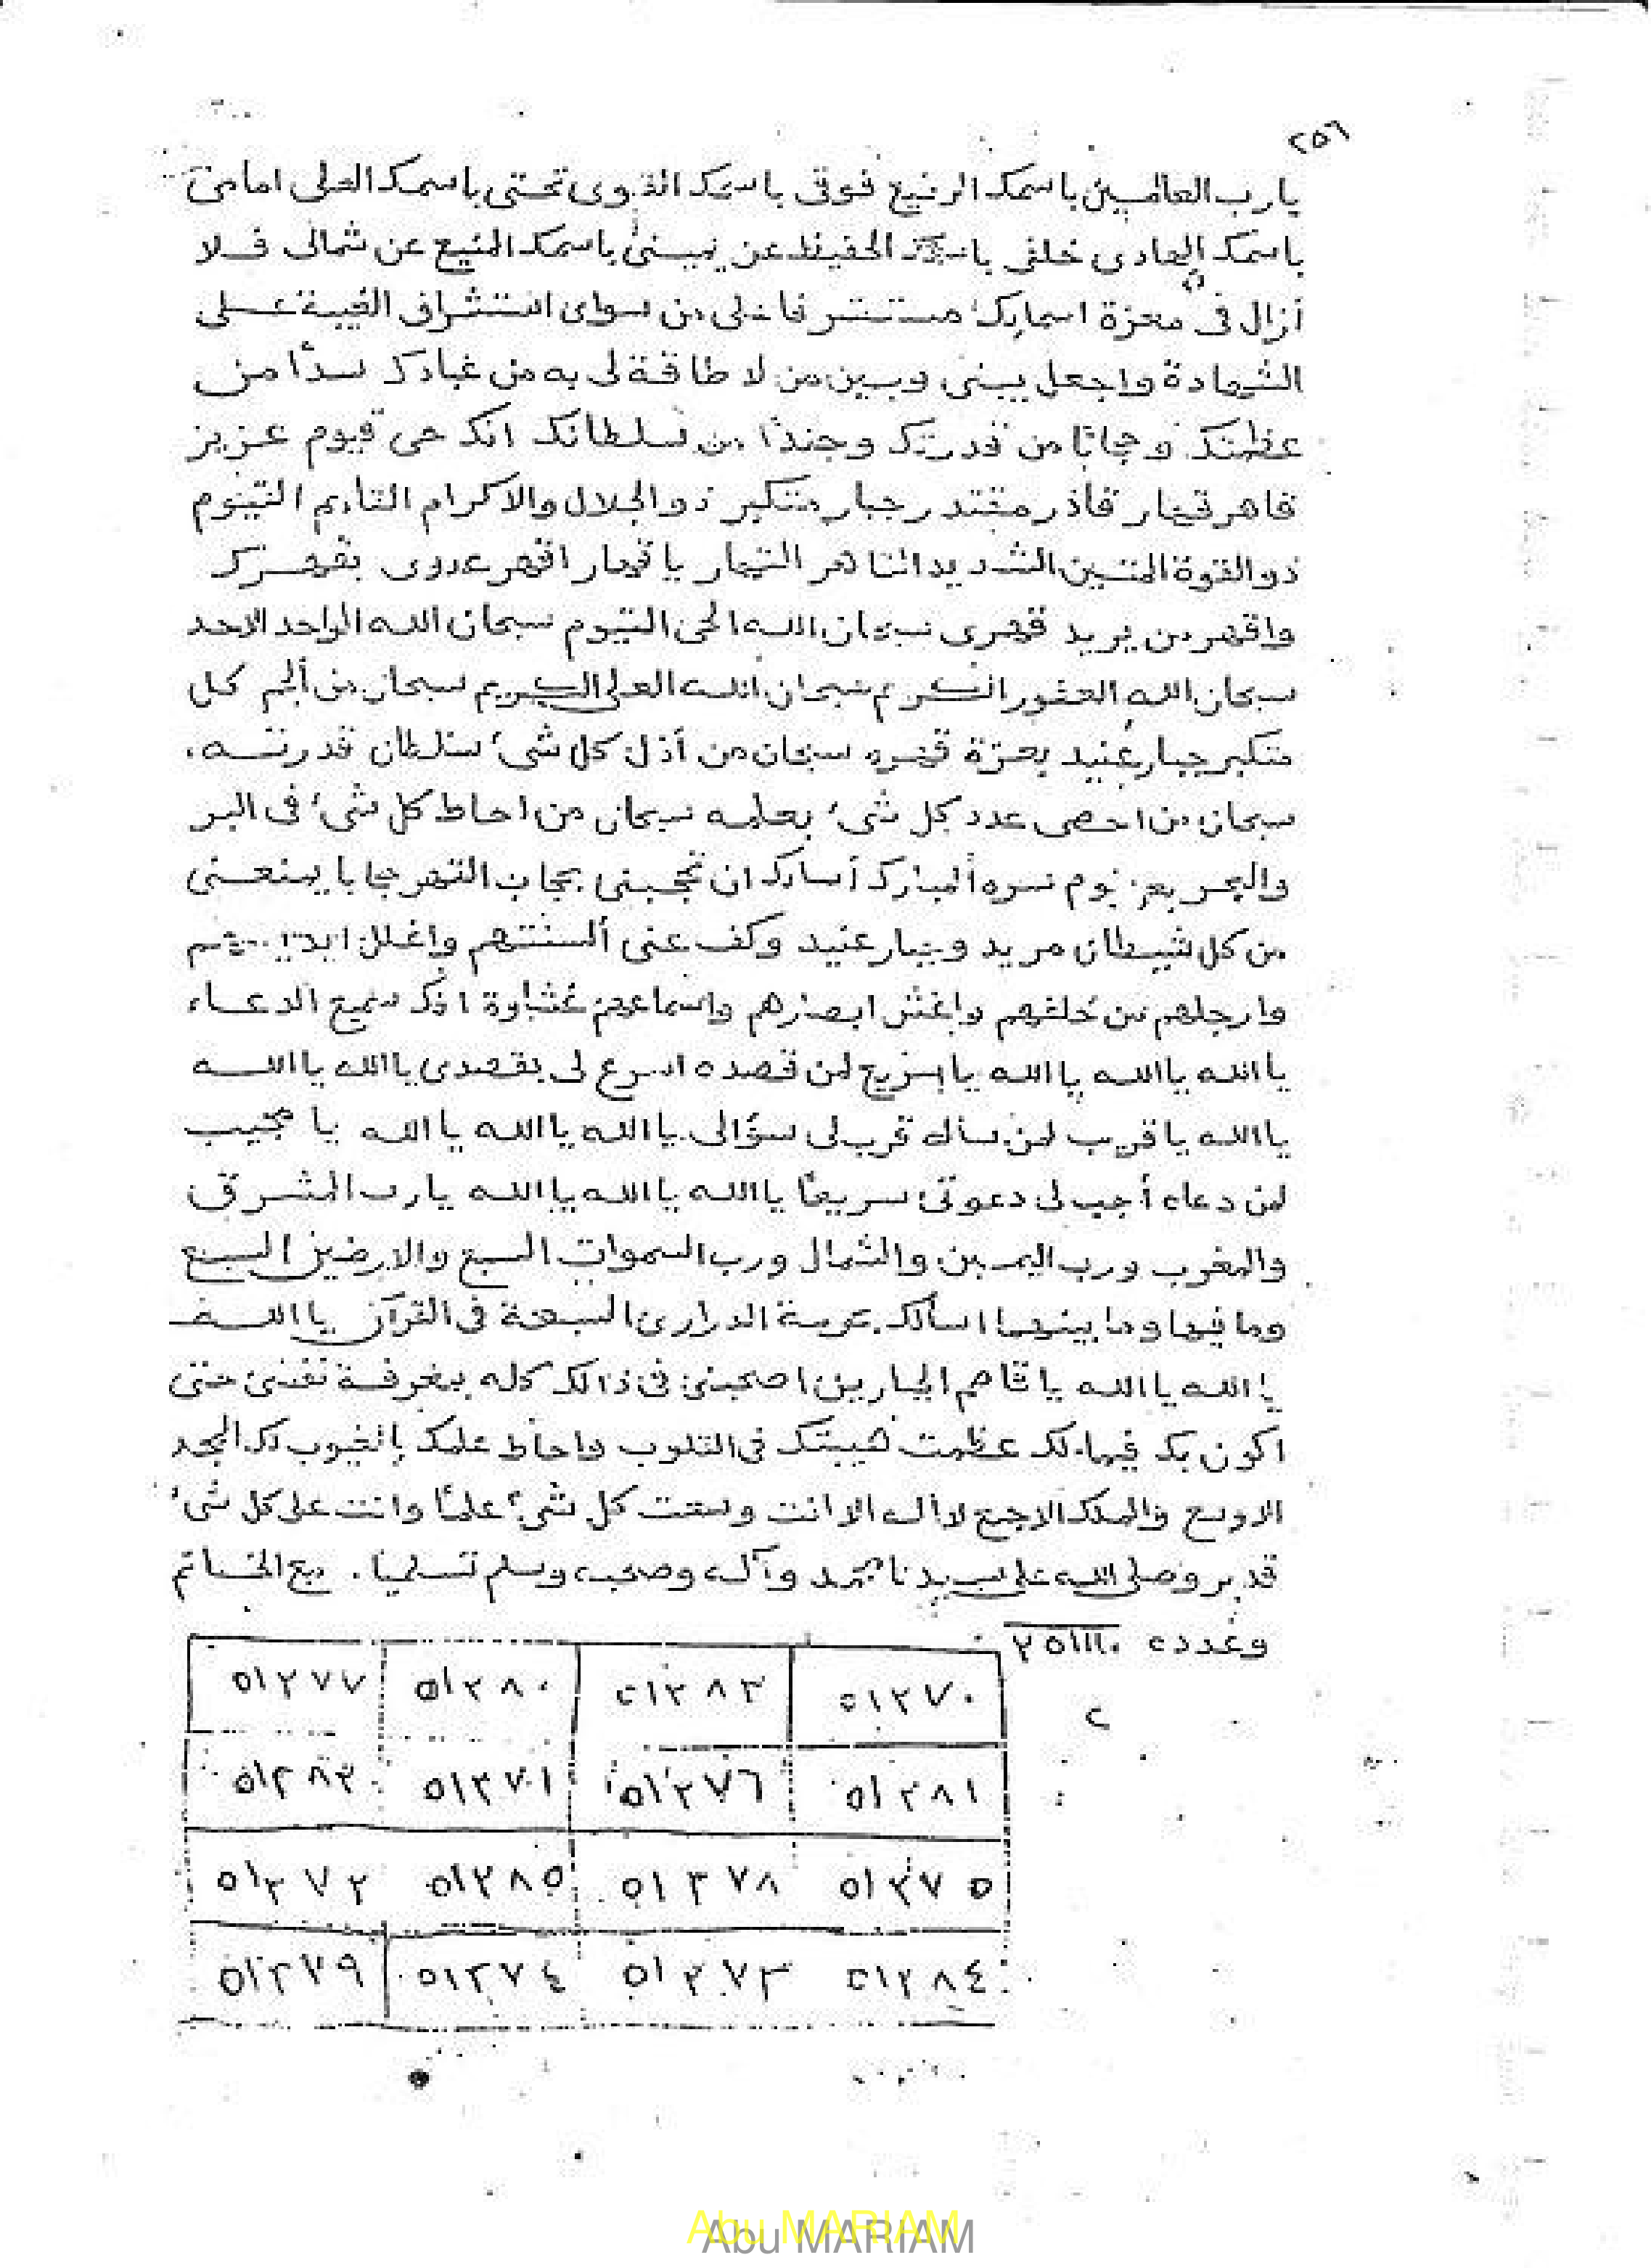 ٢٥٦
يارب العالمين باسمك الرفيع فوقى باسمك القوى تحتى باسمك العلى امامى
باسمك الهادى خلفى باسمك الحفيظ عن يمينى باسمك المنيع عن شمالى فلا
أزال فى معزة اسمايك مستتر من سواى الغيبة على
الشهادة واجعل بينى وبين من لا طاقة لى به من عبادك سدا من
عظمتك وحجابا من قدرتك وجندا من سلطانك انك حى قيوم عزيز
قاهر قهار قادر مقتدر جبار متكبر ذو الجلال والاكرام القايم القيوم
ذو القوة المتين الشديد القاهر القهار يا قهار اقهر عدوى بقهرك
واقهر من يريد قهرى سبحان الله الحى القيوم سبحان الله الواحد الاحد
سبحان الله الغفور الكريم سبحان الله العلى الكريم سبحان من ألجم كل
متكبر جبار عنيد بعزة قهره سبحان من أذل كل شىء سلطان قدرته،
سبحان من احصى عدد كل شىء بعلمه سبحان من احاط كل شىء فى البر
والبحر المبارك أسالك ان تحجبنى بحجاب القهر حجابا يمنعنى
من كل شيطان مريد وجبار عنيد وكف عنى ألسنتهم واغلل ايديهم
وارجلهم من خلفهم واغش ابصارهم واسماعهم غشاوة انك سميع الدعاء
يا الله يا الله يا الله يا سريع لمن قصده اسرع لى بقصدى يا الله يا الله
يا الله يا قريب لمن سأله قرب لى سؤالى يا الله يا الله يا الله يا مجيب
لمن دعاه أجب لى دعوتى سريعا يا الله يا الله يا الله يا رب المشرق
والمغرب ورب اليمين والشمال ورب السموات السبع والارضين السبع
وما فيها وما بينهما اسألك الدرارى السبعة فى القرآن يا الله
يا الله يا الله يا قاصم الجبارين اصحبنى فى ذالك كله بمعرفة نفسى حتى
اكون بك فيما لك عظمت هيبتك فى القلوب واحاط علمك بالغيوب لك المجد
الاوسع والملك الاجمع لا اله الا انت وسعت كل شىء علما وانت على كل شىء
قدير وصلى الله على سيدنا محمد وآله وصحبه وسلم تسليما . مع الخاتم
وعدده ٢٥١١١٠
٥١٣٧٠ ٥١٣٨٣ ٥١٣٨٠ ٥١٣٧٧
٥١٣٨١ ٥١٣٧٦ ٥١٣٧١ ٥١٣٨٢
٥١٣٧٥ ٥١٣٧٨ ٥١٣٨٥ ٥١٣٧٢
٥١٣٨٤ ٥١٣٧٣ ٥١٣٧٤ ٥١٣٧٩
Abu MARIAM